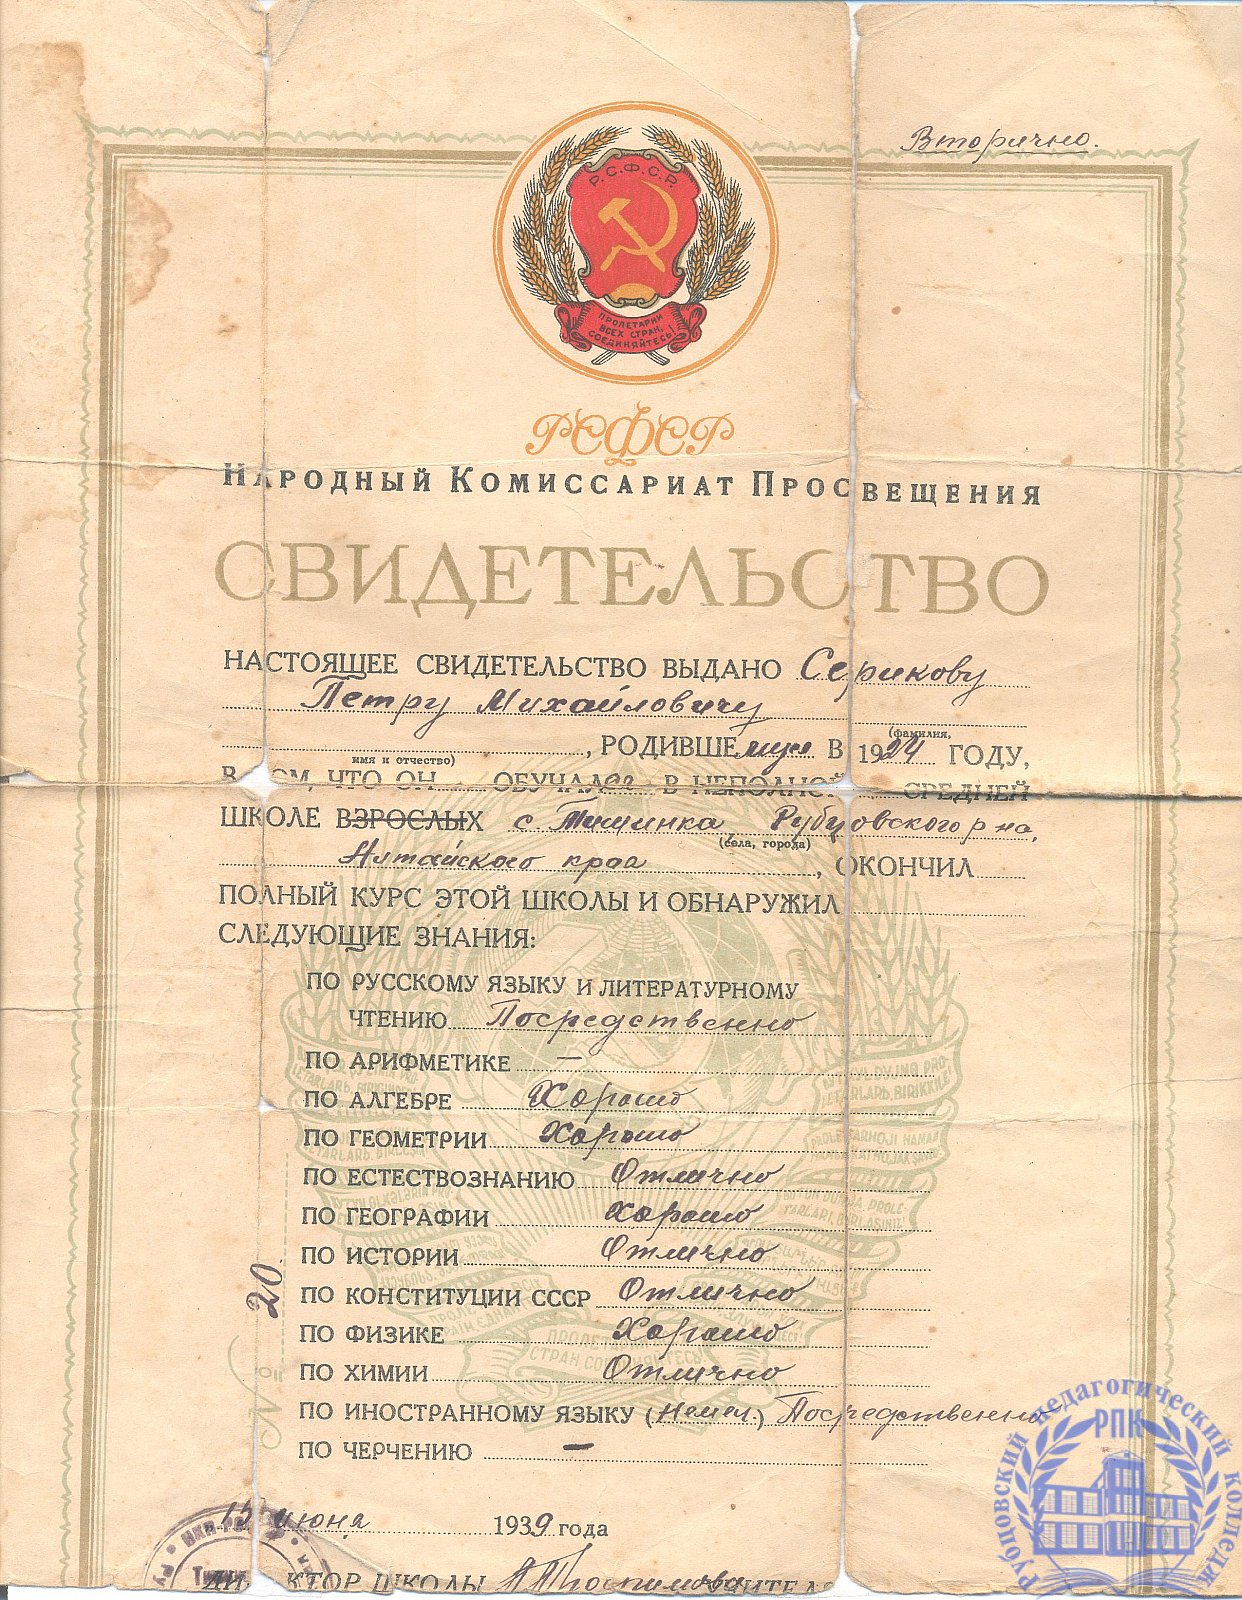 Вторично.
Р.С.Ф.С.Р.
ПРОЛЕТАРИИ
ВСЕХ СТРАН,
СОЕДИНЯЙТЕСЬ!
РСФСР
НАРОДНЫЙ КОМИССАРИАТ ПРОСВЕЩЕНИЯ
СВИДЕТЕЛЬСТВО
НАСТОЯЩЕЕ СВИДЕТЕЛЬСТВО ВЫДАНО Серикову
Петру Михайловичу
(фамилия,
имя и отчество)
, РОДИВШЕмуся В 1924 ГОДУ,
В ТОМ, ЧТО ОН ОБУЧАЛся В НЕПОЛНОЙ СРЕДНЕЙ
ШКОЛЕ ВЗРОСЛЫХ с Тишинка Рубцовского р на,
(села, города)
Алтайского края, ОКОНЧИЛ
ПОЛНЫЙ КУРС ЭТОЙ ШКОЛЫ И ОБНАРУЖИЛ
СЛЕДУЮЩИЕ ЗНАНИЯ:
ПО РУССКОМУ ЯЗЫКУ И ЛИТЕРАТУРНОМУ
ЧТЕНИЮ Посредственно
ПО АРИФМЕТИКЕ —
ПО АЛГЕБРЕ Хорошо
ПО ГЕОМЕТРИИ Хорошо
ПО ЕСТЕСТВОЗНАНИЮ Отлично
ПО ГЕОГРАФИИ Хорошо
ПО ИСТОРИИ Отлично
ПО КОНСТИТУЦИИ СССР Отлично
ПО ФИЗИКЕ Хорошо
ПО ХИМИИ Отлично
ПО ИНОСТРАННОМУ ЯЗЫКУ (Немец.) Посредственно
ПО ЧЕРЧЕНИЮ —
№ 20
15 июня 1939 года
ДИРЕКТОР ШКОЛЫ
Рубцовский педагогический колледж
РПК